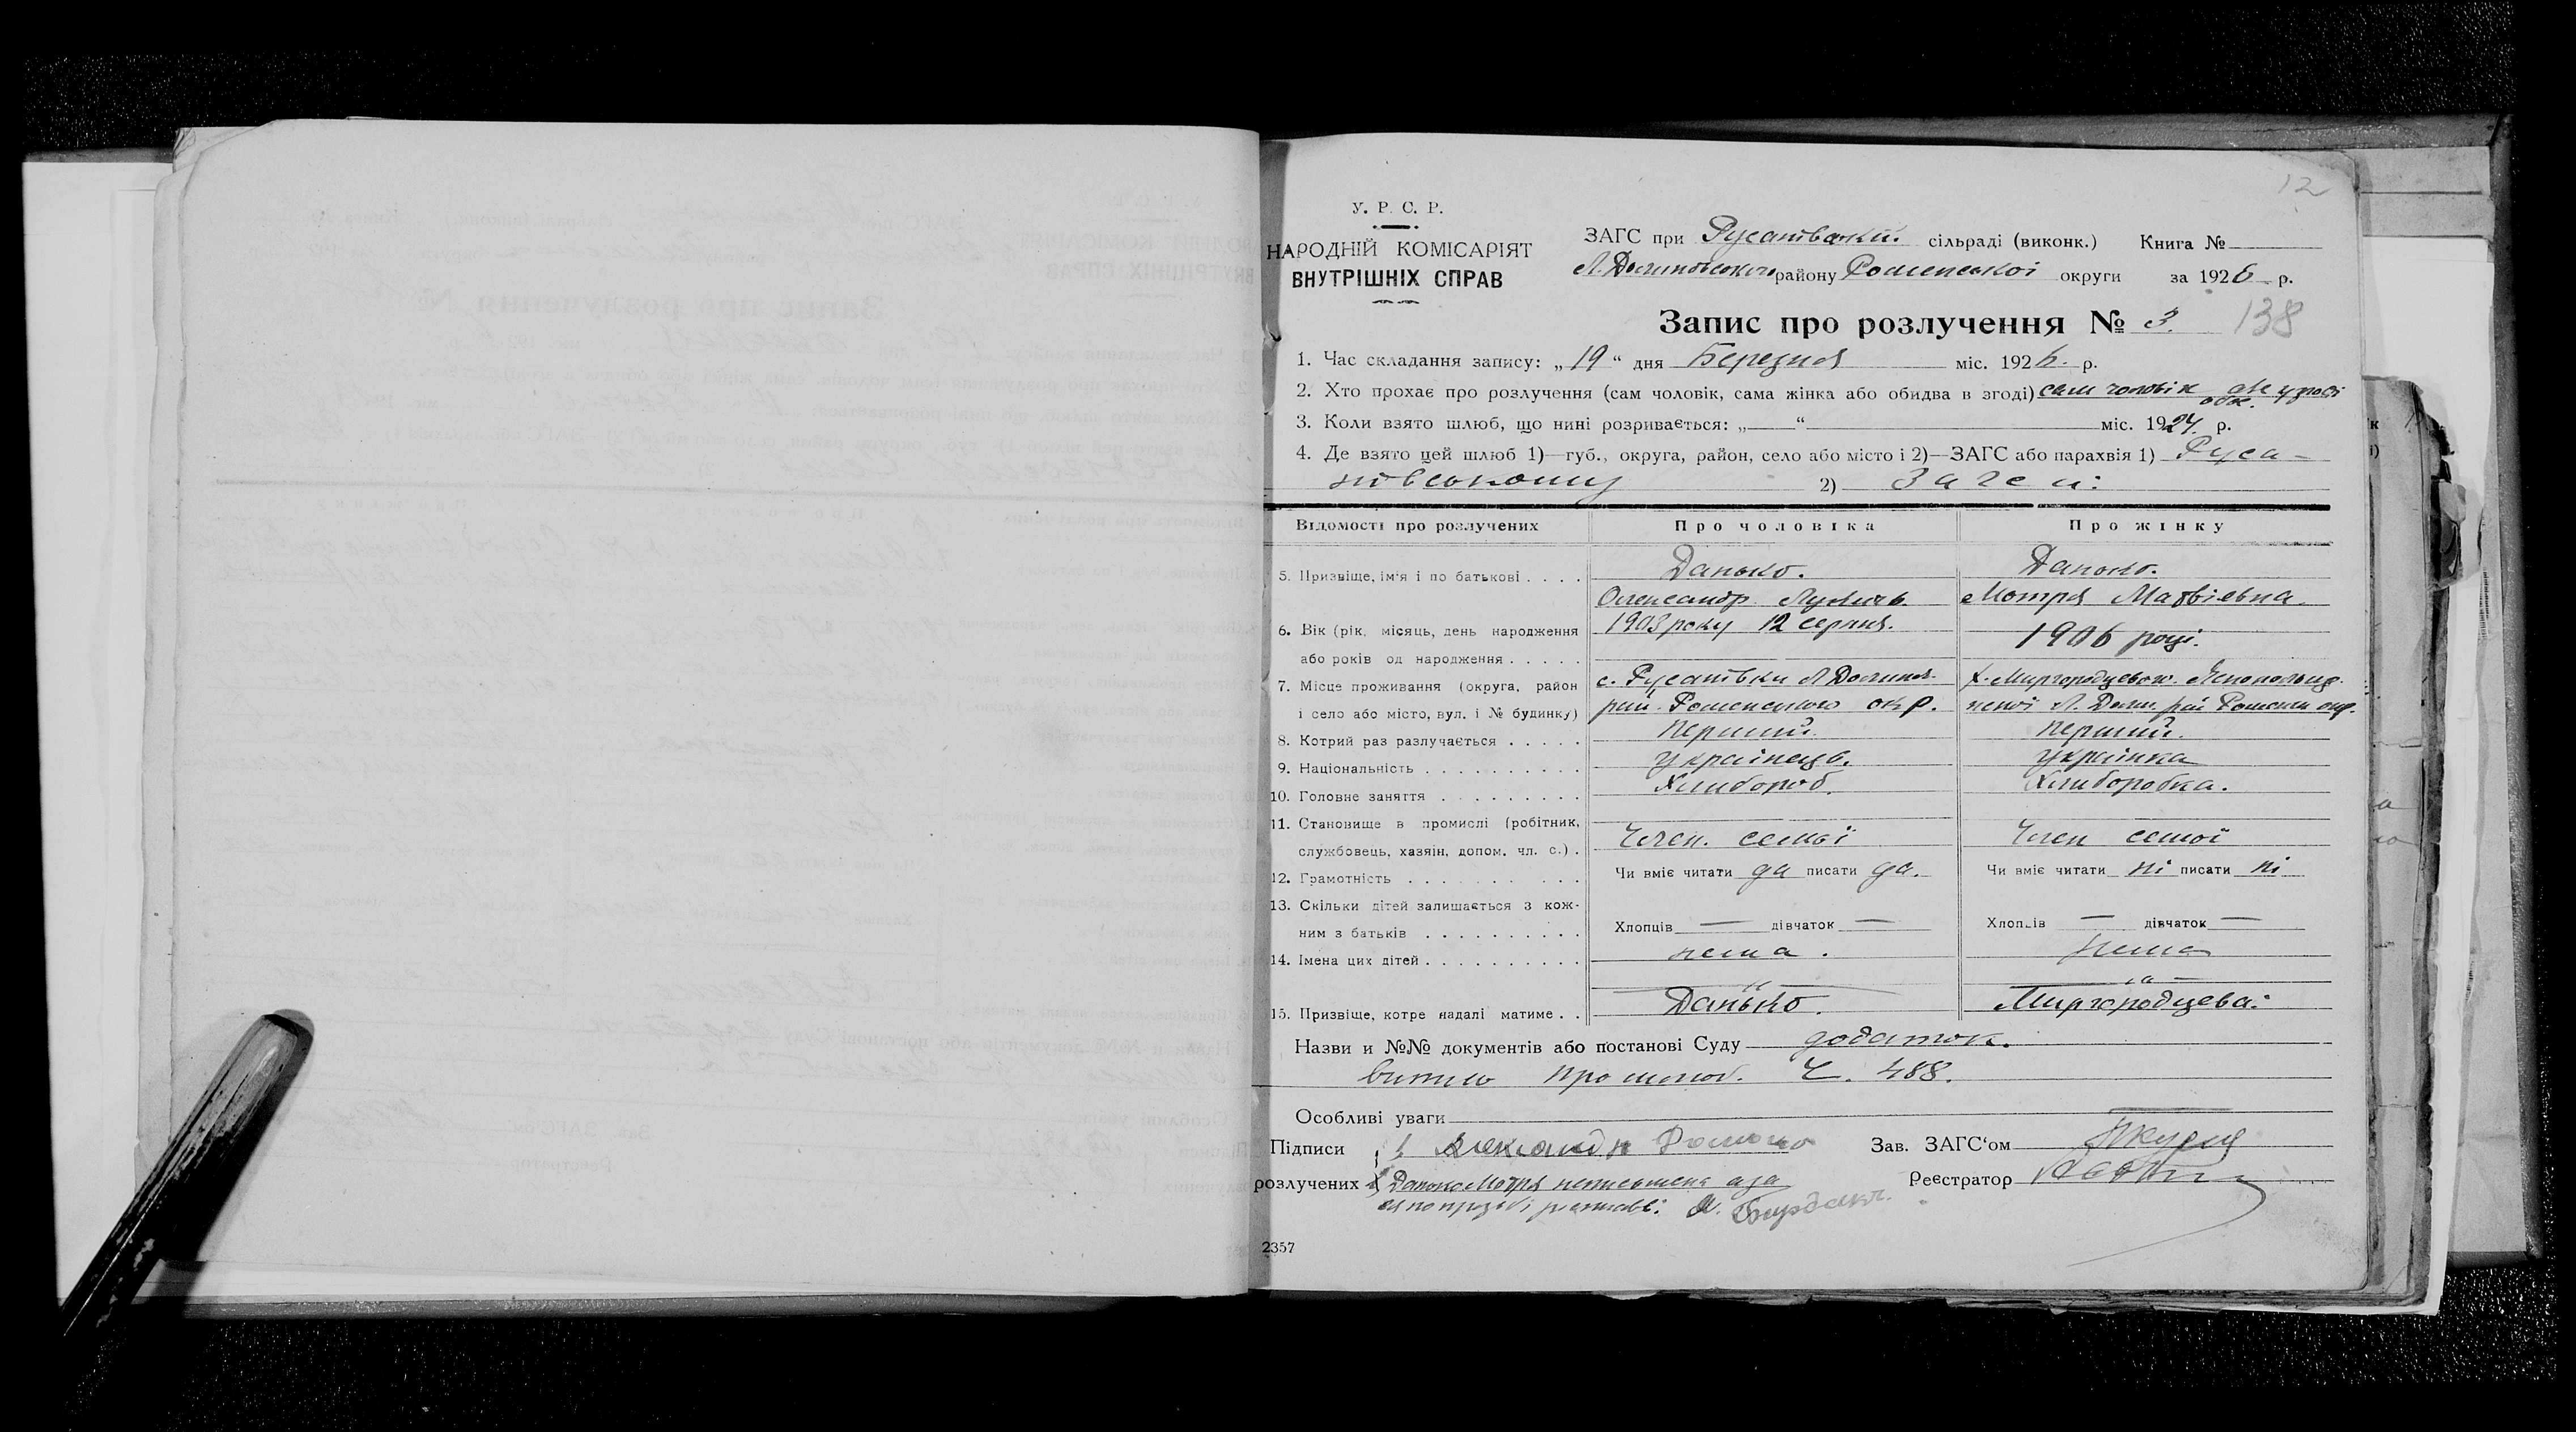 12
У. Р. С. Р.
НАРОДНІЙ КОМІСАРІЯТ
ВНУТРІШНІХ СПРАВ
ЗАГС при Русанівській сільраді (виконк.) Книга №
Л. Долинського району Роменської округи за 1926 р.
Запис про розлучення № 3. 138
1. Час складання запису: „19“ дня Березня міс. 1926. р.
2. Хто прохає про розлучення (сам чоловік, сама жінка або обидва в згоді) сам чоловік
3. Коли взято шлюб, що нині розривається: „ “ міс. 1924. р.
4. Де взято цей шлюб 1)—губ., округа, район, село або місто і 2)—ЗАГС або парахвія 1) Руса-
нівському 2) Загсі
Відомості про розлучених Про чоловіка Про жінку
5. Призвіще, ім'я і по батькові . . . . Данько. Данько.
Олександр Мотря Матвієвна.
6. Вік (рік, місяць, день народження 1903 року 12 серпня. 1906 році.
або років од народження . . . . .
7. Місце проживання (округа, район с. Русанівки Л Долинс. х. Миргородцевого
і село або місто, вул. і № будинку) рай. Роменського окр. Л. Долин. рай Роменськ окр.
8. Котрий раз разлучається . . . . . Перший. Перший.
9. Національність . . . . . . . . . . Українець. Українка
10. Головне заняття . . . . . . . . . Хлибороб. Хлиборобка.
11. Становище в промислі (робітник,
службовець, хазяін, допом. чл. с.) . Член. семьї Член семої
12. Грамотність . . . . . . . . . . Чи вміє читати да писати да. Чи вміє читати ні писати ні
13. Скільки дітей залишається з кож-
ним з батьків . . . . . . . . . . Хлопців — дівчаток — Хлопців — дівчаток —
14. Імена цих дітей . . . . . . . . . . . нема. нема
15. Призвіще, котре надалі матиме . . Данько. Миргородцева.
Назви и №№ документів або постанові Суду додаток.
витяг про шлюб. Ч. 488.
Особливі уваги
Підписи 1 Александр Данько Зав. ЗАГС‘ом
розлучених Данько Мотря неписьмена а за Реєстратор
2357